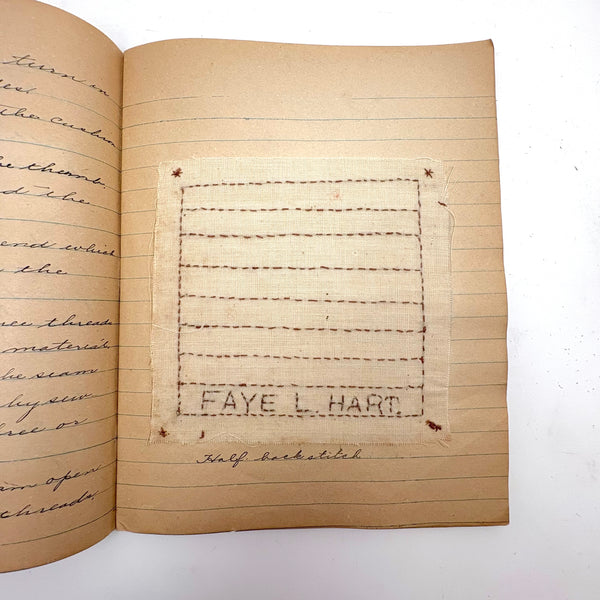 turn in
the cushion
the thumb.
d the
end which
the
ree threads
material.
he seam
by sew
hree or
am open
threads,
FAYE L. HART.
Half backstitch